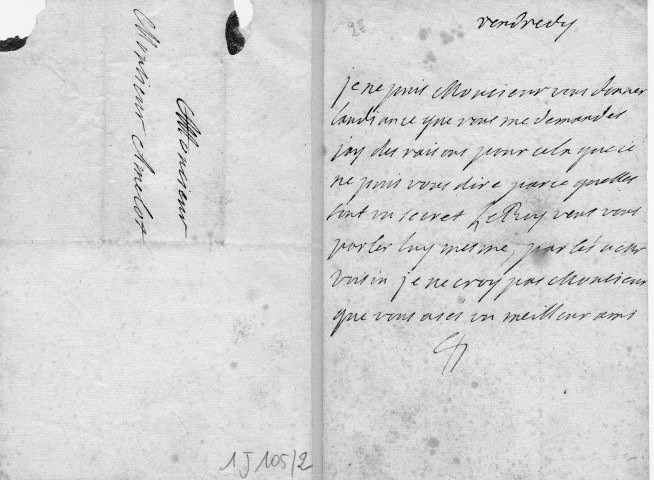 Monsieur
Monsieur Amelot
1 J 105/2
2e
vendredy
je ne puis Monsieur vous donner
laudiance que vous me demandes
jay des raisons pour cela que ie
ne puis vous dire parce quelles
sont un secret Le Roy veut vous
parler luy mesme, parlés a Mr
voisin je ne croy pas Monsieur
que vous ayes un meilleur ami